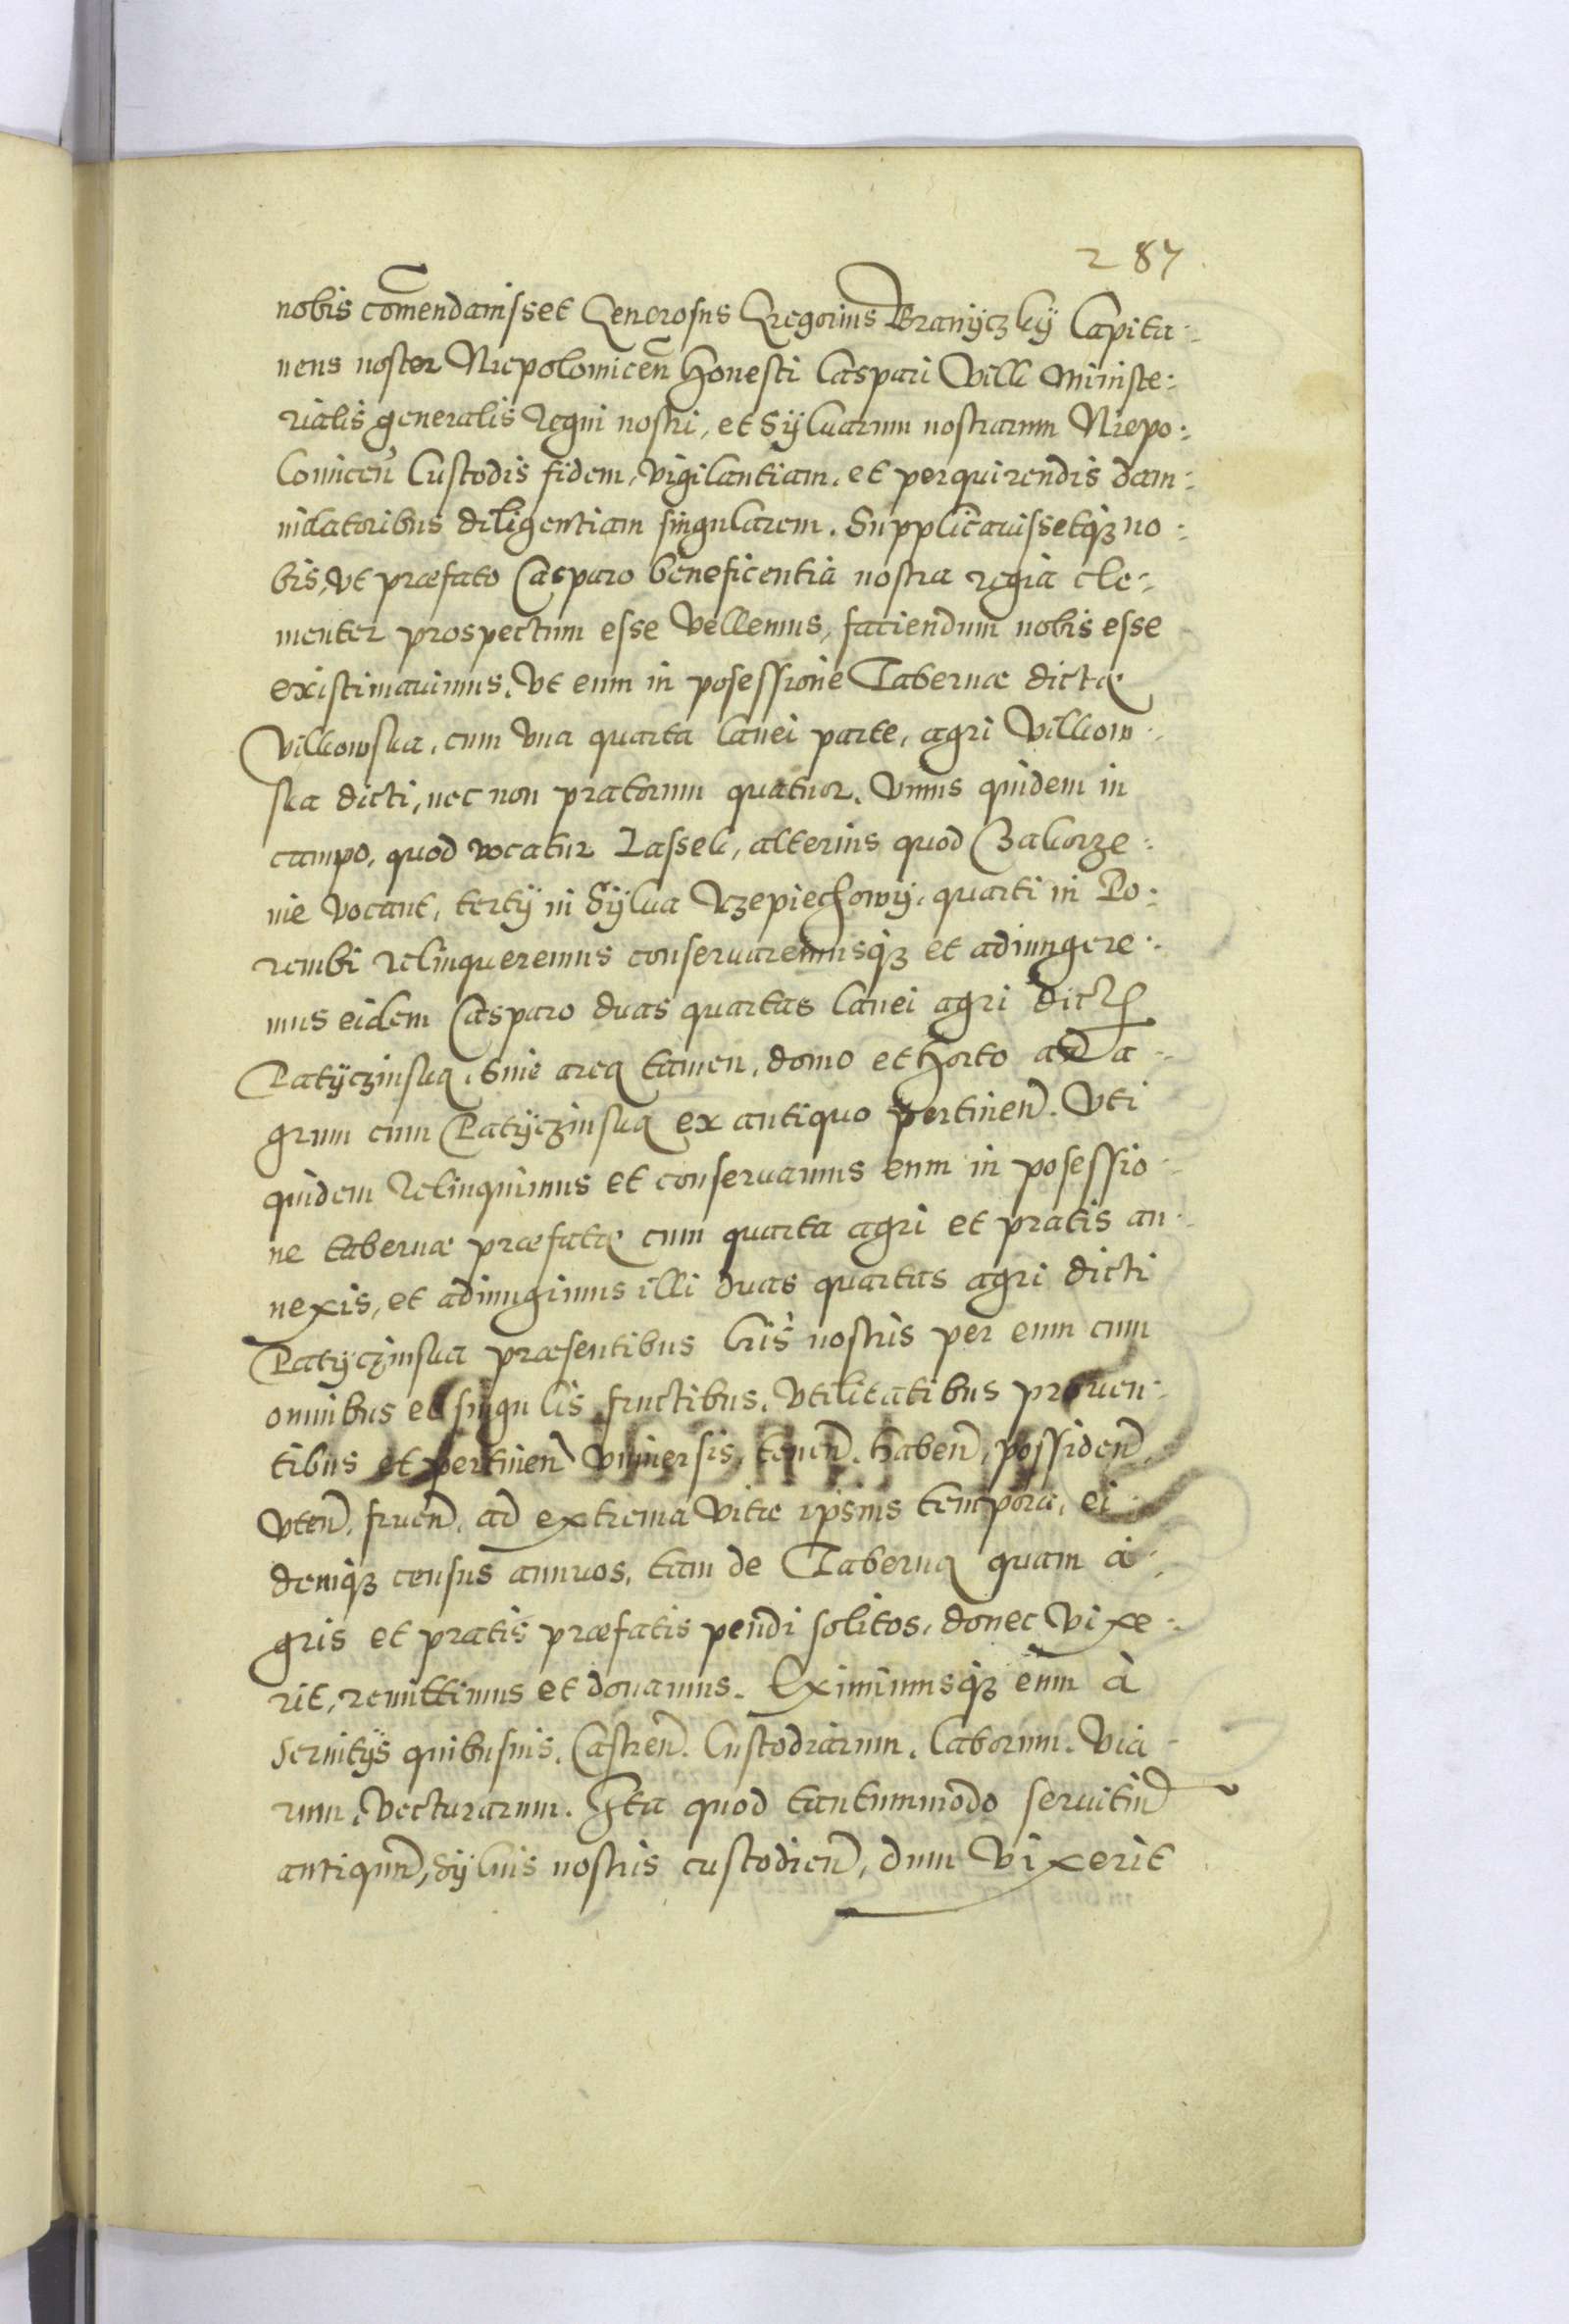 287
nobis com̄endauisset Generosus Gregorius Branÿczkÿ Capita:
neus noster Niepolomicen̄ Honesti Caspari Wilk Ministe:
rialis generalis Regni nostri, et Sÿluarum nostrarum Niepo:
lomicen̄ Custodis fidem, vigilantiam, et perquirendis dam:
nidatoribus diligentiam singularem. Supplicauissetq₃ no:
bis, vt præfato Casparo beneficentia nostra regia cle:
menter prospectum esse vellemus, faciendum nobis esse
existimauimus, vt eum in posessione Tabernæ dictæ
Vilkowska, cum vna quarta lanei parte, agri Vilkow:
ska dicti, nec non pratorum quatuor, vnius quidem in
campo, quod vocatur Lassek, alterius quod Zakorze:
nie vocant, tertÿ in Sÿlua Rzepiechowÿ, quarti in Po:
rembi relinqueremus conseruaremusq₃ et adiungere:
mus eidem Casparo duas quartas lanei agri dict
Patÿczinskę, sine area tamen, domo et horto ad a:
grum cum Patÿczinskę ex antiquo pertinen̄. Vti
quidem relinquimus et conseruamus eum in posessio:
ne tabernæ præfatæ cum quarta agri et pratis an:
nexis, et adiungimus illi duas quartas agri dicti
Patÿczinska præsentibus lr̄is nostris per eum cum
omnibus et singulis fructibus, vtilitatibus prouen:
tibus et pertinen̄ vniuersis, tenen̄. haben̄, possiden̄,
vten̄, fruen̄, ad extrema vitæ ipsius tempora, ei
deniq₃ census annuos, tam de Taberna quam a:
gris et pratis præfatis pendi solitos, donec vixe:
rit, remittimus et donamus. Eximimusq₃ eum à
seruitÿs quibusuis, Castren̄. Custodiarum, laborum, via:
rum, vecturarum. Ita quod tantummodo seruitiū
antiquū, sÿluis nostris custodien̄, dum vixerit